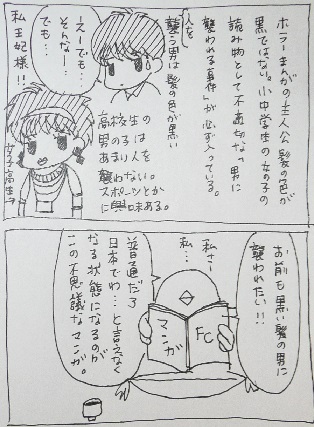 ホラーまんがの主人公髪の色が
黒ではない。小中学生の女の子の
読み物として不適切な「男に
襲われる事件」が必ず入っている。
人を
襲う男は髪の色が黒い
えーでも…
そんなー…
でも…
高校生の
男の子は
あまり人を
襲わない。
スポーツとか
に興味ある。
私王妃様!!
女子高生
お前も黒い髪の男に
襲われたい!!
私さー
私…
FC
マンガ
普通だろ
日本でわ…と言えなく
なる状態になるのが
この不思議なマンガ。